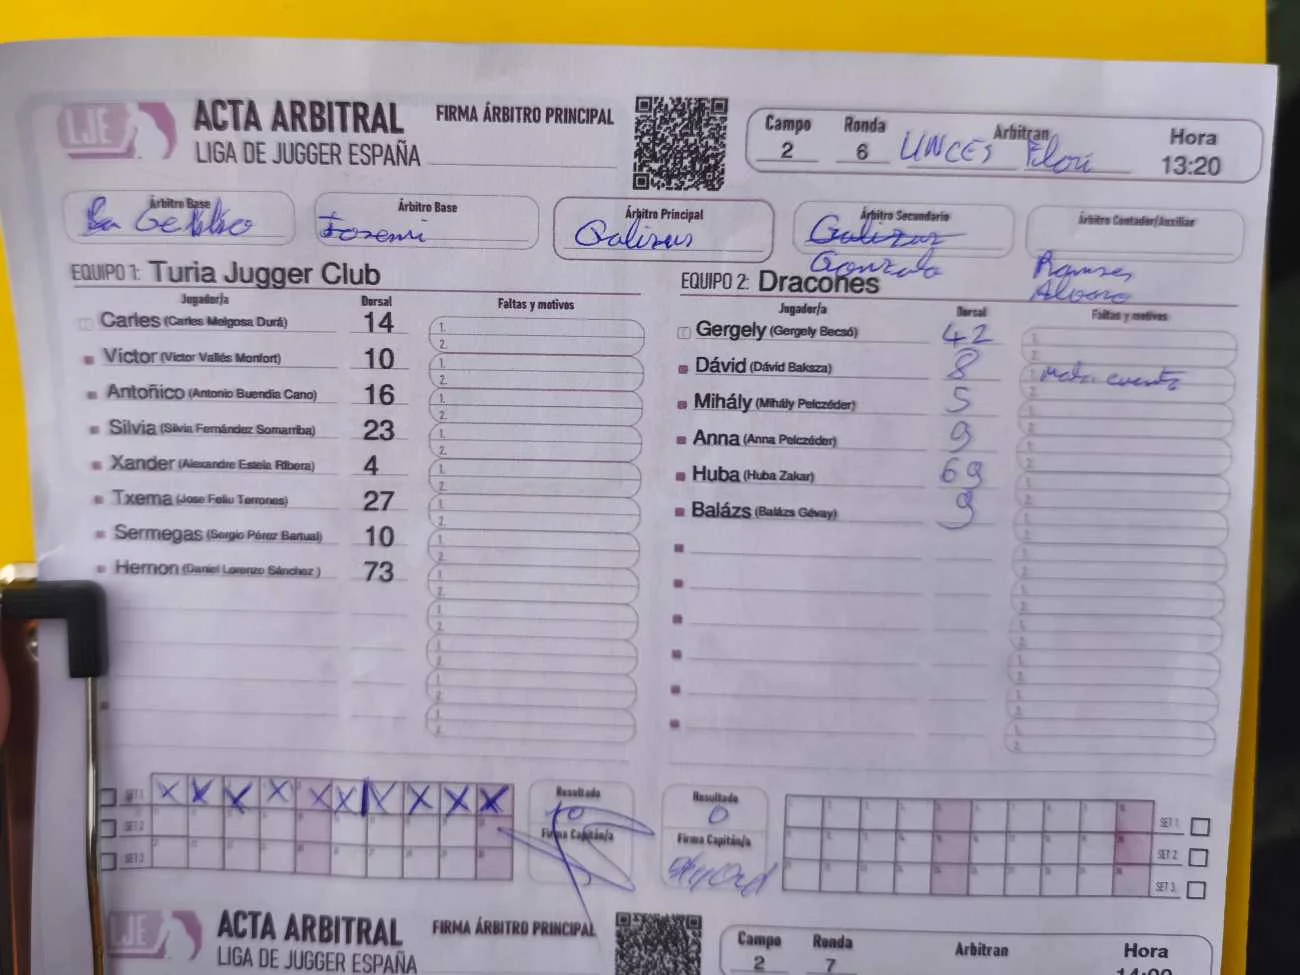 LJE
ACTA ARBITRAL
LIGA DE JUGGER ESPAÑA
FIRMA ÁRBITRO PRINCIPAL
Campo Ronda Arbitran Hora
2 6 UNCES Flori 13:20
Árbitro Base
Árbitro Base
Josemi
Árbitro Principal
Árbitro Secundario
Gonzalo
Árbitro Contador/Auxiliar
Ramses
Alvaro
EQUIPO 1: Turia Jugger Club
Jugador/a Dorsal Faltas y motivos
Carles (Carles Melgosa Durá) 14
Víctor (Víctor Vallés Monfort) 10
Antoñico (Antonio Buendía Cano) 16
Silvia (Silvia Fernández Somarriba) 23
Xander (Alexandre Estela Ribera) 4
Txema (Jose Feliu Terrones) 27
Sermegas (Sergio Pérez Bartual) 10
Hernon (Daniel Lorenzo Sánchez) 73
EQUIPO 2: Dracones
Jugador/a Dorsal Faltas y motivos
Gergely (Gergely Becsó) 42
Dávid (Dávid Baksza) 8 mala cuenta
Mihály (Mihály Pelczéder) 5
Anna (Anna Pelczéder) 9
Huba (Huba Zakar) 69
Balázs (Balázs Gévay) 9
SET 1
SET 2
SET 3
Resultado
10
Firma Capitán/a
Resultado
0
Firma Capitán/a
SET 1
SET 2
SET 3
LJE
ACTA ARBITRAL
LIGA DE JUGGER ESPAÑA
FIRMA ÁRBITRO PRINCIPAL
Campo Ronda Arbitran Hora
2 7 14:00